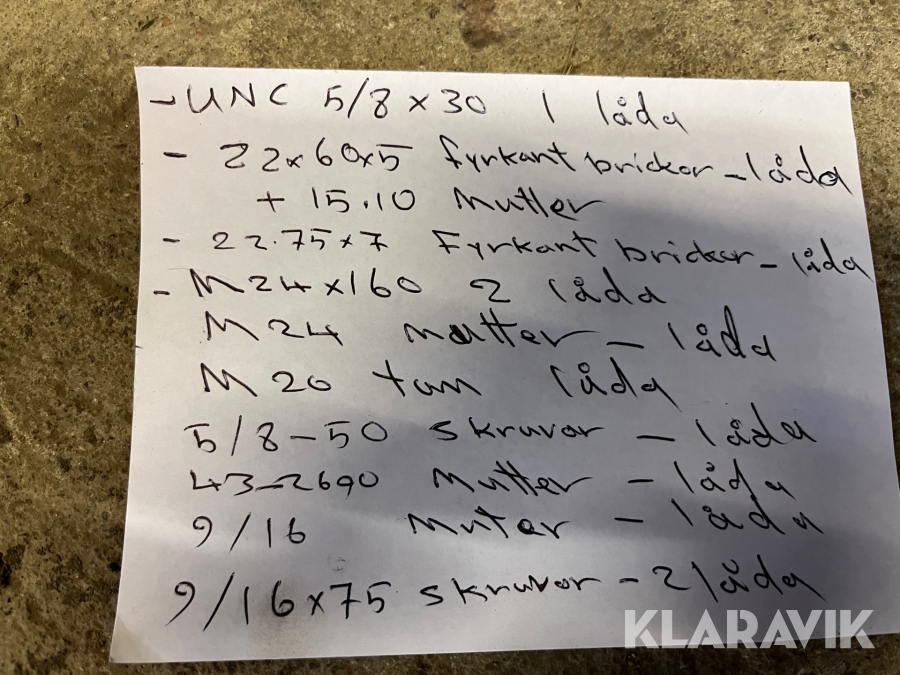 - UNC 5/8 x 30 1 låda
- 22x60x5 fyrkant brickor - låda
+ 15.10 Mutter
- 22.75x7 Fyrkant brickor - låda
- M24x160 2 låda
M24 mutter - låda
M20 tum låda
5/8-50 skruvar - låda
43-2690 Mutter - låda
9/16 Muter - låda
9/16x75 skruvar - 2 låda
KLARAVIK